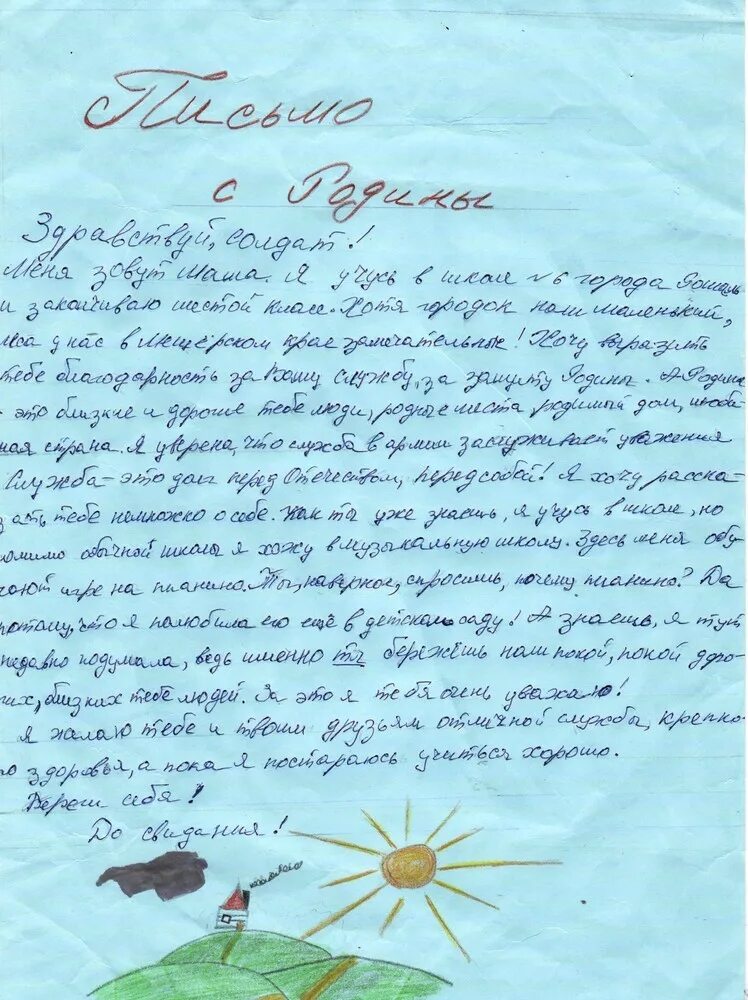 Письмо
с Родины
Здравствуй, солдат!
Меня зовут Маша. Я учусь в школе №6 города Рошаль
и заканчиваю шестой класс. Хотя городок наш маленький,
леса у нас в Мещёрском крае замечательные! Хочу выразить
тебе благодарность за Вашу службу, за защиту Родины. А Родина
- это близкие и дорогие тебе люди, родные места родимый дом, люби-
мая страна. Я уверена, что служба в армии заслуживает уважения
Служба - это долг перед Отечеством, перед собой! Я хочу расска-
зать тебе немножко о себе. Как ты уже знаешь, я учусь в школе, но
помимо обычной школы я хожу в музыкальную школу. Здесь меня обу
чают игре на пианино. Ты, наверное, спросишь, почему пианино? Да
потому, что я полюбила его ещё в детском саду! А знаешь, я тут
недавно подумала, ведь именно ты бережёшь наш покой, покой дро-
гих, близких тебе людей. За это я тебя очень уважаю!
я желаю тебе и твоим друзьям отличной службы, крепко-
го здоровья, а пока я постараюсь учиться хорошо.
Береги себя!
До свидания!